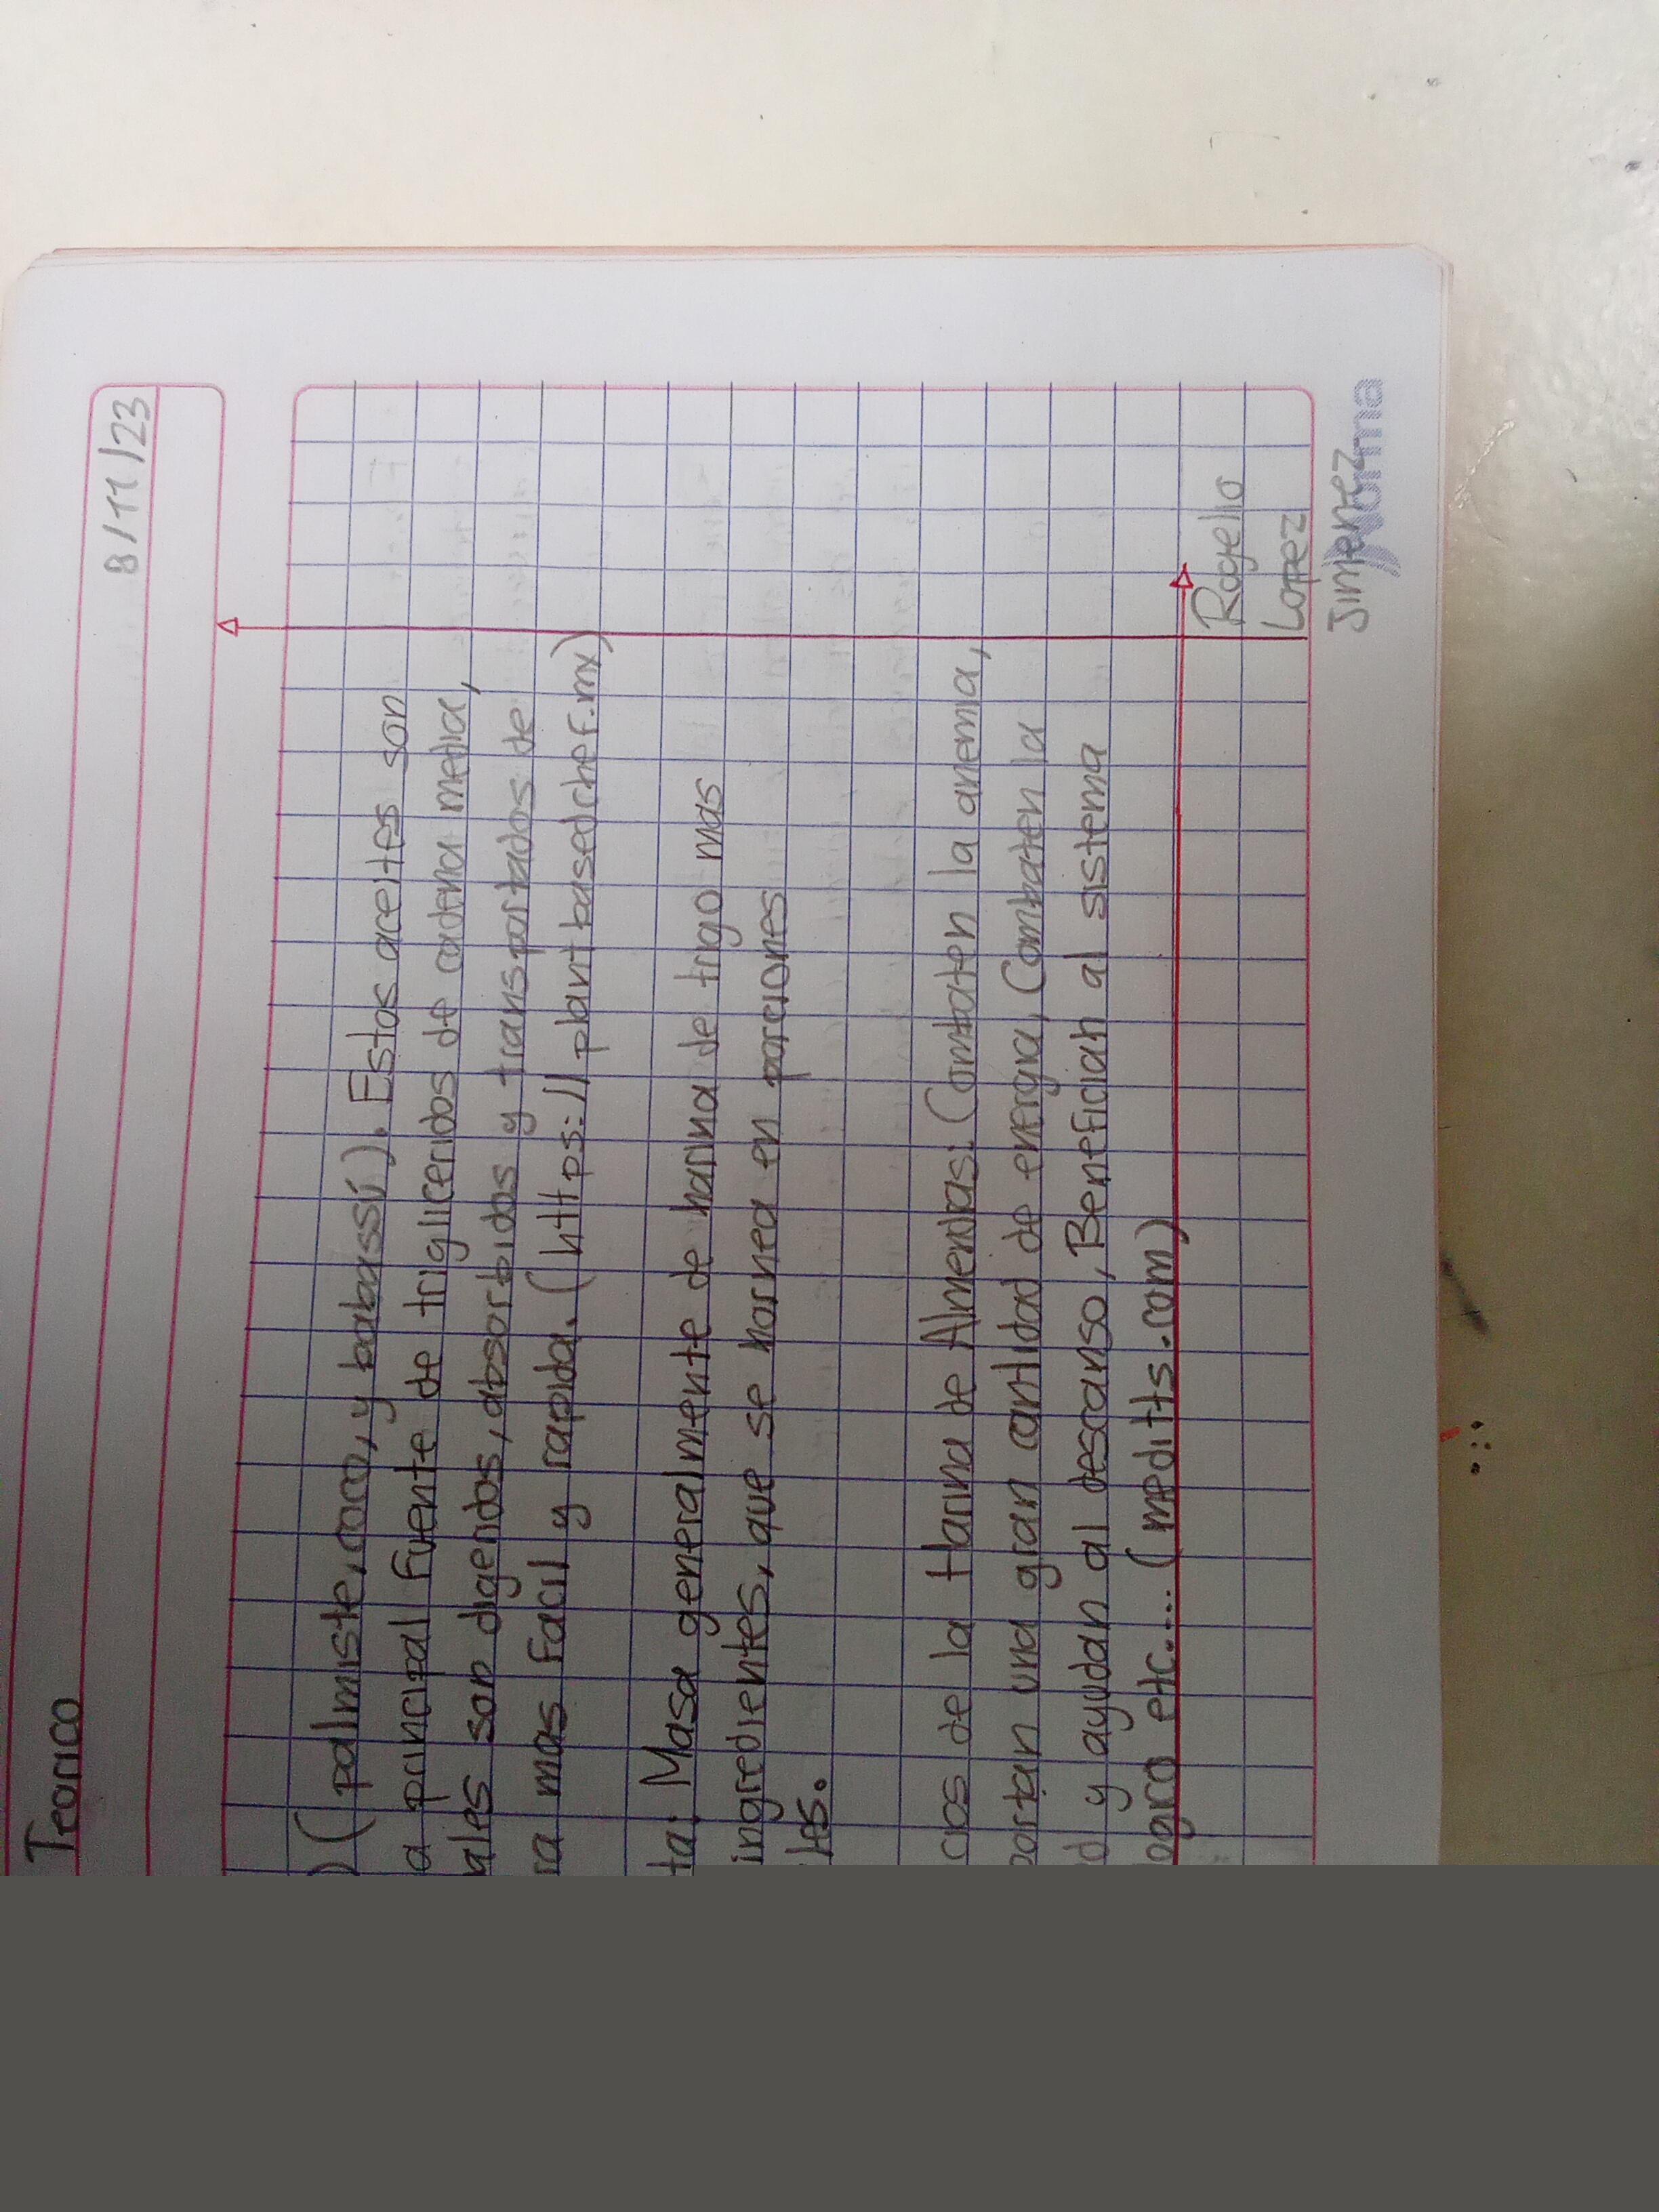 Teorico
8/11/23
) (palmiste, coco, y babassú). Estos aceites son
a principal fuente de trigliceridos de cadena media,
ales son digeridos, absorbidos y transportados de
ra mas facil y rapida. (https://plantbasedchef.mx)
ta: Masa generalmente de harina de trigo mas
ingredientes, que se hornea en porciones
les.
cios de la Harina de Almendras: Combaten la anemia,
portan una gran cantidad de energia, Combaten la
d y ayudan al descanso, Benefician al sistema
ogico etc.... (meditts.com)
Rogelio
Lopez
Jimenez
norma